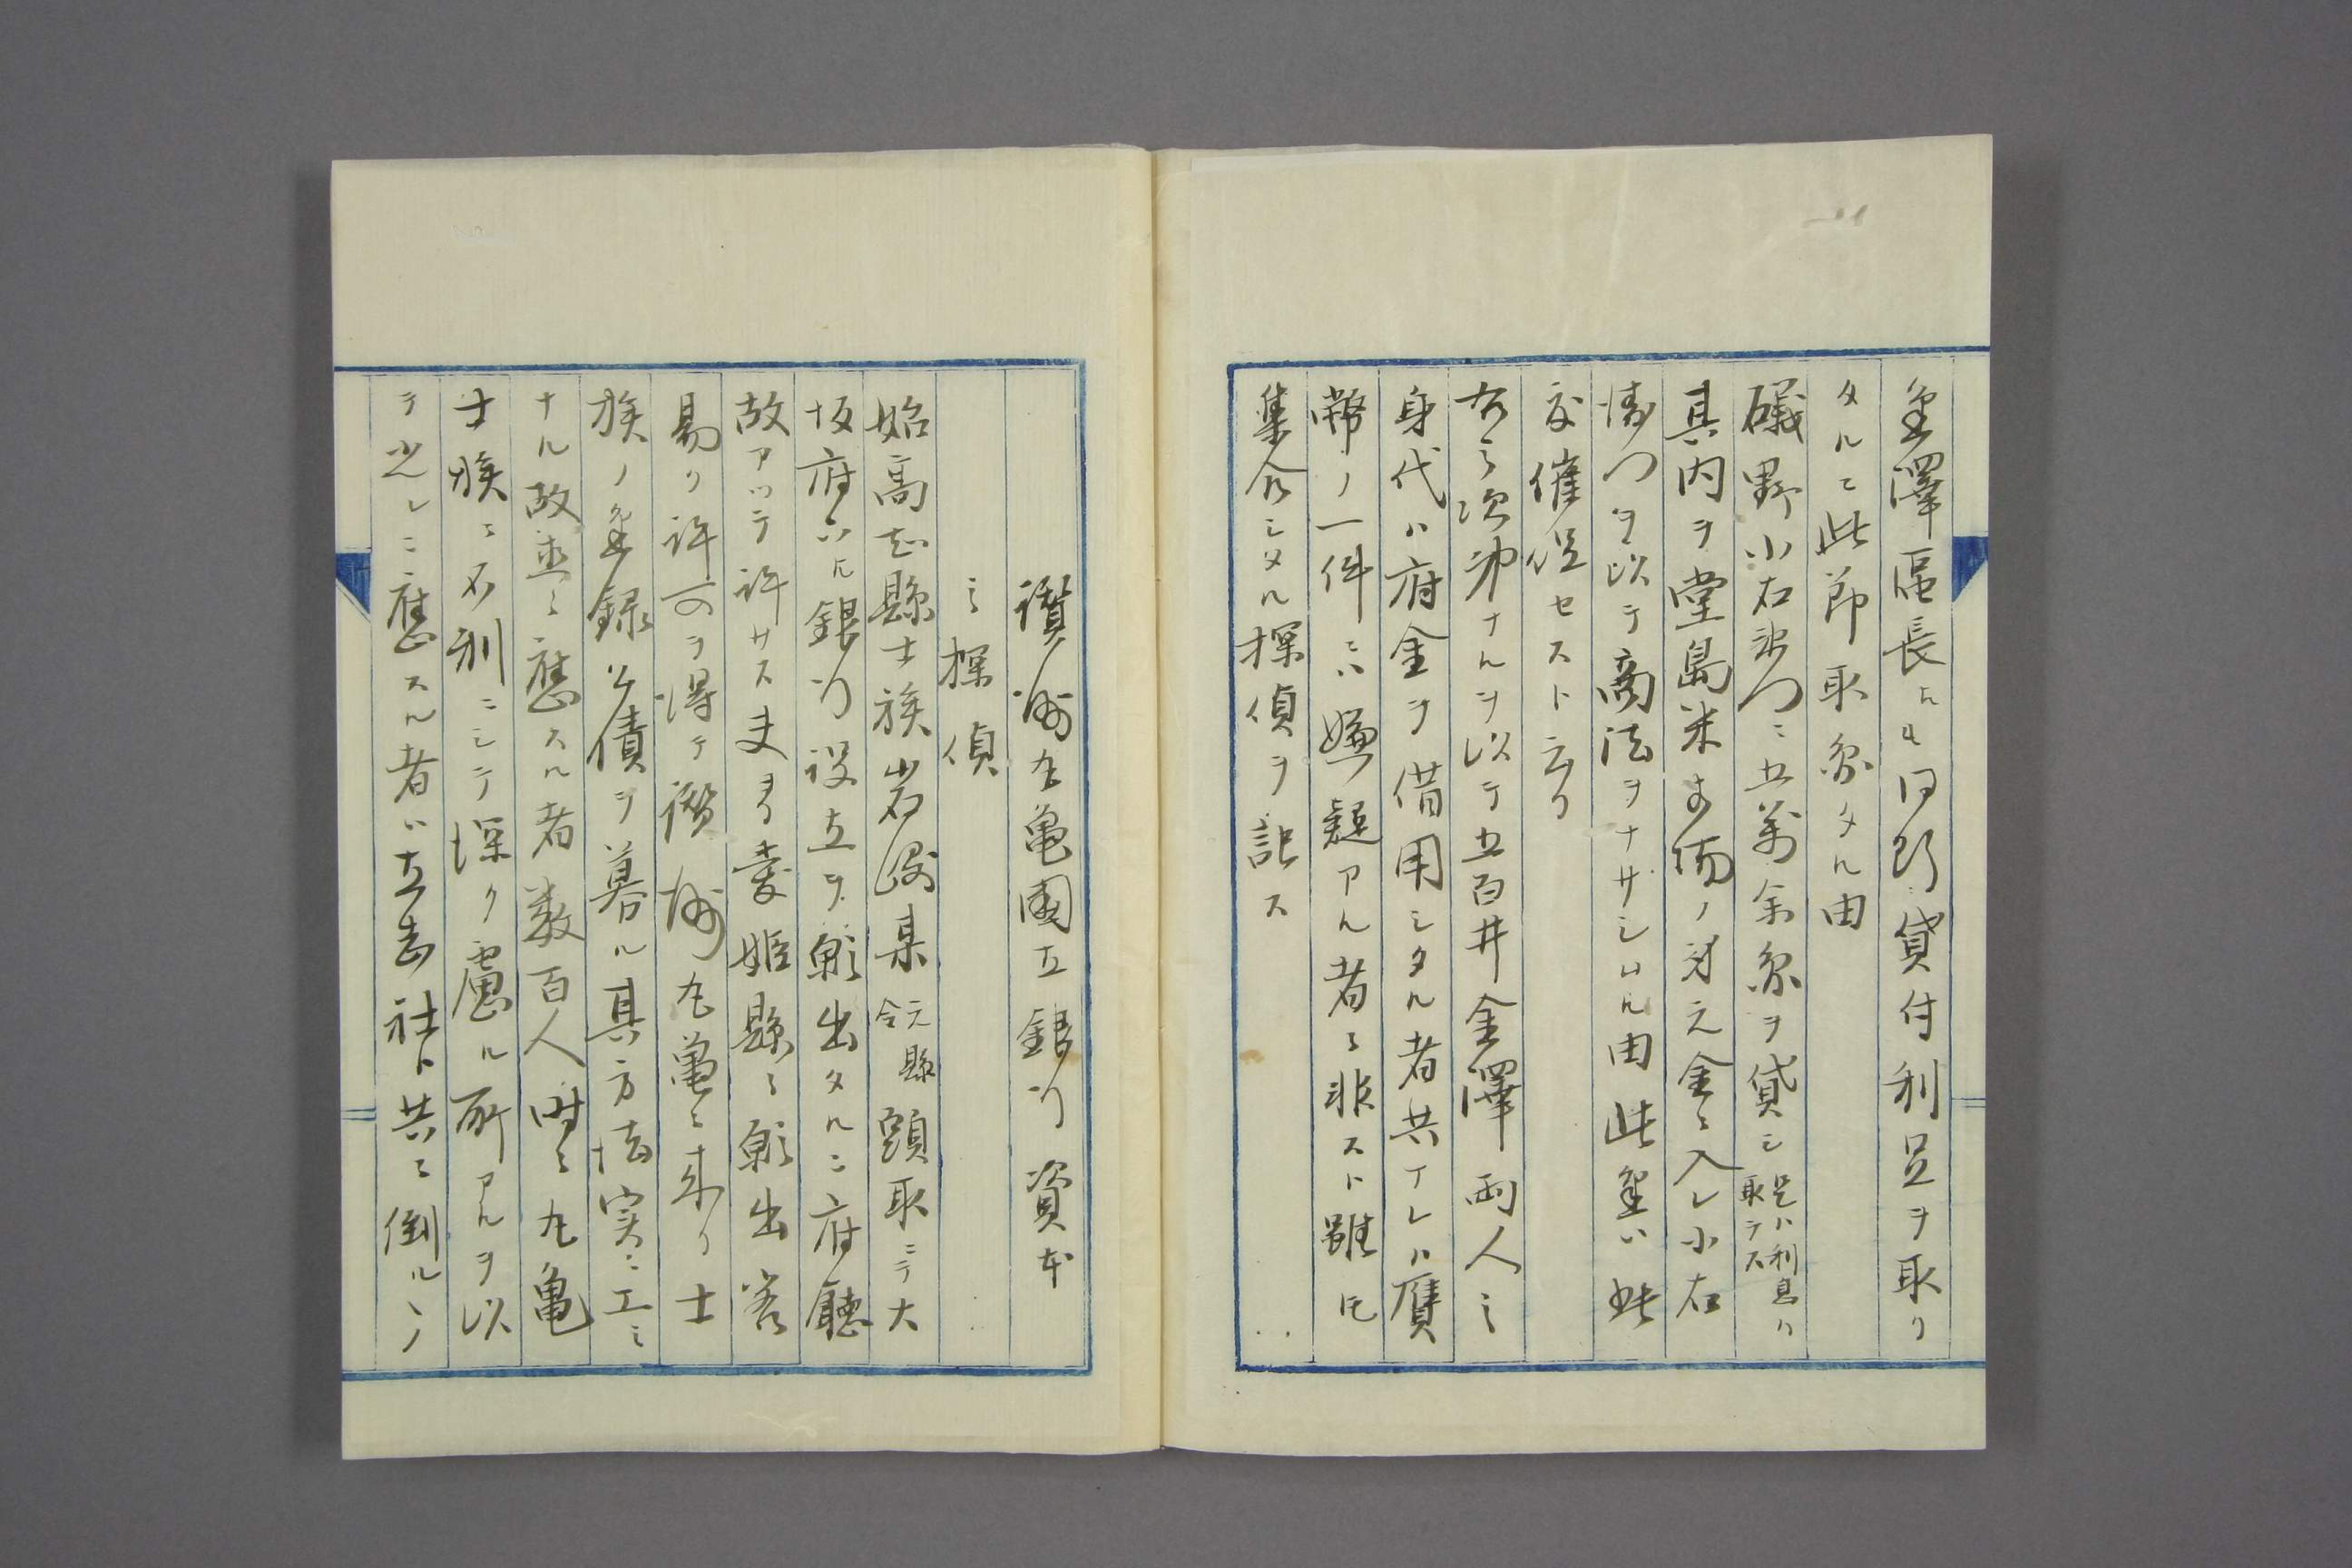 金澤區長ヘモ同断貸付利足ヲ取リ
タルニ此節取納タル由
礒野小右衛門ニ五萬余円ヲ貸シ是ハ利息ハ取ラス
其内ヲ堂島米商ノ身元金ニ入レ小右
衛門ヲ以テ商法ヲナサシムル由此金ハ此
度催促セスト云リ
右之次第ナルヲ以テ五百井金澤両人之
身代ハ府金ヲ借用シタル者共ナレハ贋
幣ノ一件ニハ嫌疑アル者ニ非スト雖モ
集合シタル探偵ヲ記ス
讃州丸亀國立銀行資本
之探偵
始高知縣士族岩﨑某元縣令頭取ニテ大
坂府下ヘ銀行設立ヲ願出タルニ府廳
故アツテ許サス夫ヨリ愛媛縣ニ願出容
易ク許可ヲ得テ讃州丸亀ニ来リ士
族ノ金録公債ヲ募ル其方法実ニ工ミ
ナル故並ニ應スル者数百人時ニ丸亀
士族ニ不利ニシテ深ク慮ル所アルヲ以
テ之レニ應スル者ハ立志社ト共ニ倒ルヽノ